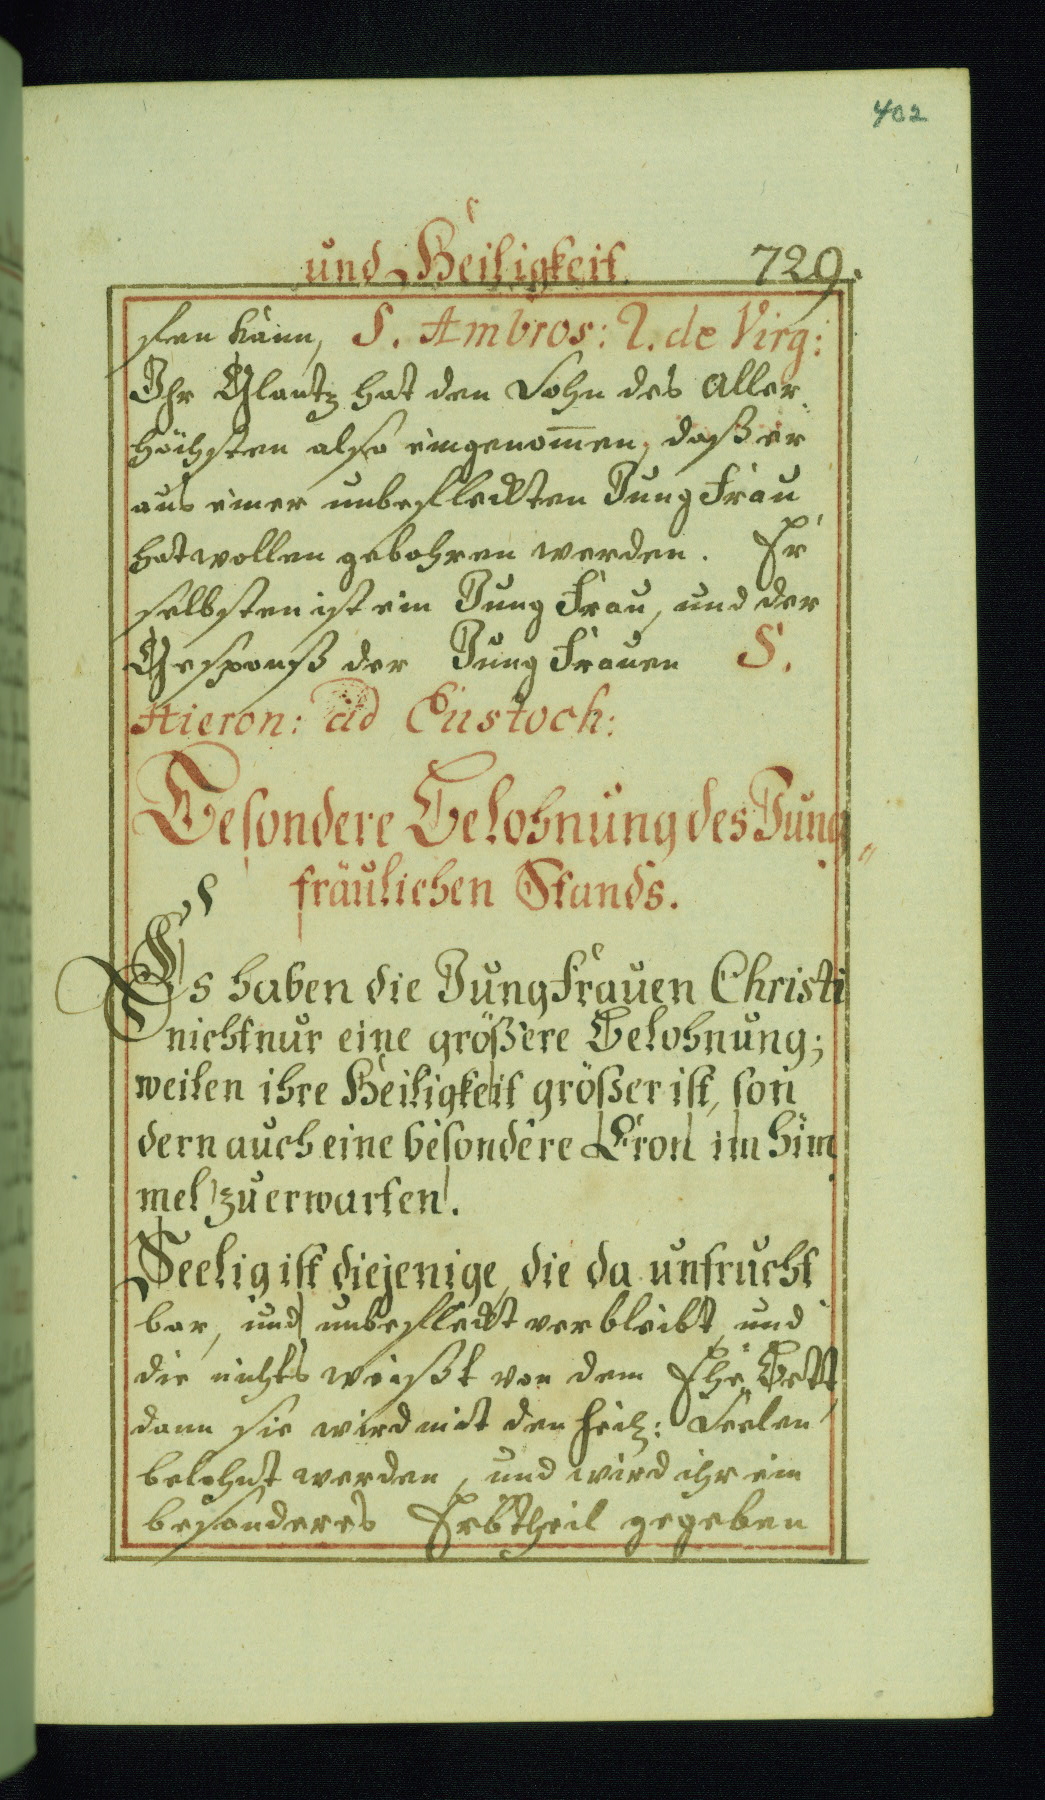 402
und Heiligkeit. 729.
sten kann, S. Ambros: l. de Virg:
Ihr Glantz hat den Sohn des Aller
höchsten also eingenom̅en, daß er
aus einer unbefleckten Jung Frau
hat wollen gebohren werden. Er
selbsten ist ein Jung Frau, und der
Gesponß der Jung Frauen S.
Hieron: ad Eustoch:
Besondere Belohnung des Jung„
fräulichen Stands.
Es haben die Jung Frauen Christi
nicht nur eine größere Belohnung;
weilen ihre Heiligkeit größer ist, son
dern auch eine besondere Cron im him
mel zu erwarten.
Seelig ist diejenige, die da unfrucht
bar, und unbefleckt verbleibt, und
die nichts weißt von dem Ehe Bett,
dann sie wird mit den heil: Seelen
belohnt werden, und wird ihr ein
besonderes Erbtheil gegeben